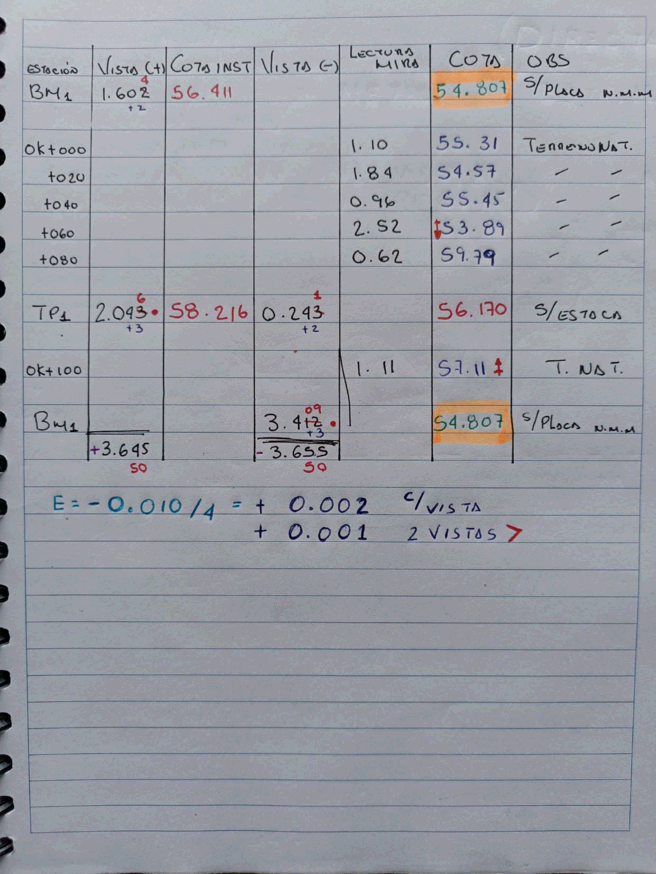 ESTACIÓN VISTA (+) COTA INST VISTA (-) LECTURA MIRA COTA OBS
BM1 1.602 4 +2 56.411 54.807 S/PLACA N.M.M
0K+000 1.10 55.31 TERRENO NAT.
+020 1.84 54.57 - -
+040 0.96 55.45 - -
+060 2.52 53.89 - -
+080 0.62 59.79 - -
TP1 2.043 6 +3 58.216 0.243 1 +2 56.170 S/ESTACA
0K+100 1.11 57.11 T. NAT.
BM1 3.412 09 +3 54.807 S/PLACA N.M.M
+3.645 - 3.655
50 50
E = - 0.010/4 = + 0.002 C/VISTA
+ 0.001 2 VISTAS >